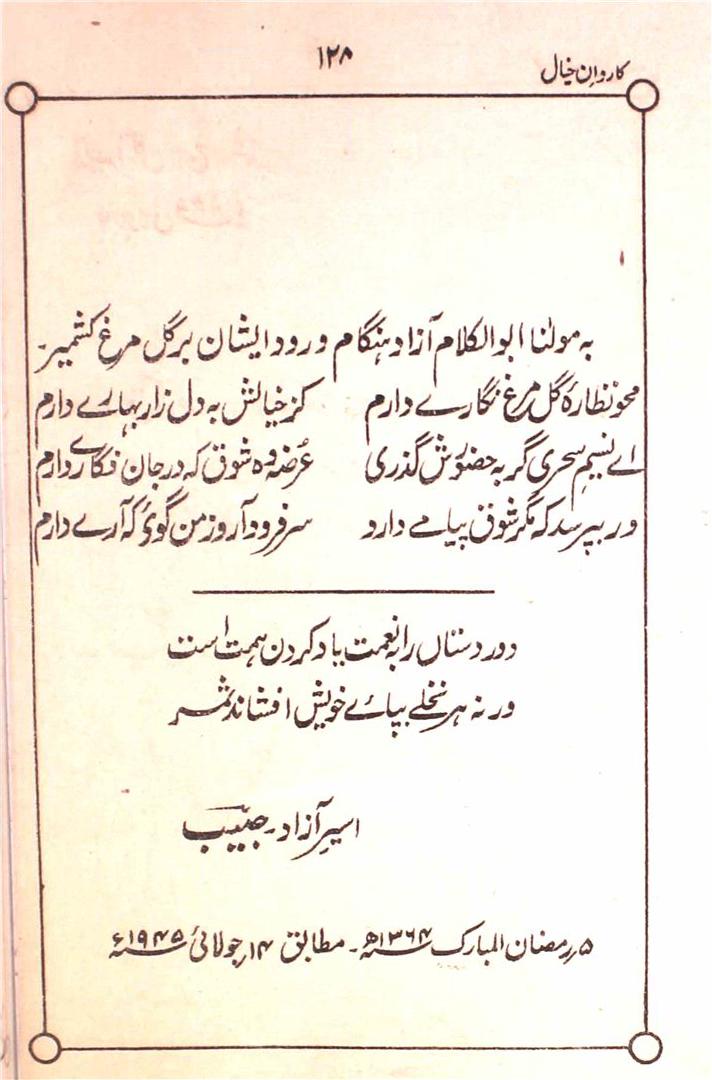 کاروانِ خیال
۱۲۸
بہ مولٰنا ابوالکلام آزاد ہنگام ورود ایشان بر گل مرغ کشمیر۔
محو نظارۂ گل مرغ نگارے دارم کز خیالش بہ دل زار بہارے دارم
اے نسیمِ سحری گر بہ حضورش گذری عُرضہ دہ شوق کہ در جان فگارے دارم
ور بپرسد کہ مگر شوق پیامے دارد سر فرود آر و ز من گوئ کہ آرے دارم
دور دستاں را بہ نعمت یاد کردن ہمت است
ورنہ ہر نخلے بپائے خویش افشاند ثمر
اسیرِ آزاد۔ حبیب
۵ رمضان المبارک ۱۳۶۴ھ۔ مطابق ۱۴ جولائی ۱۹۴۵ء